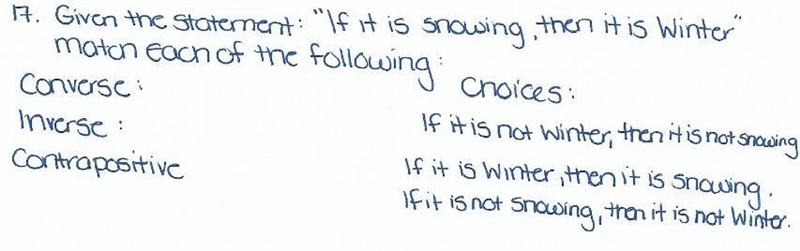 17. Given the statement: "If it is snowing, then it is Winter"
match each of the following:
Converse:
Choices:
Inverse:
If it is not winter, then it is not snowing
Contrapositive
If it is Winter, then it is snowing.
If it is not snowing, then it is not Winter.